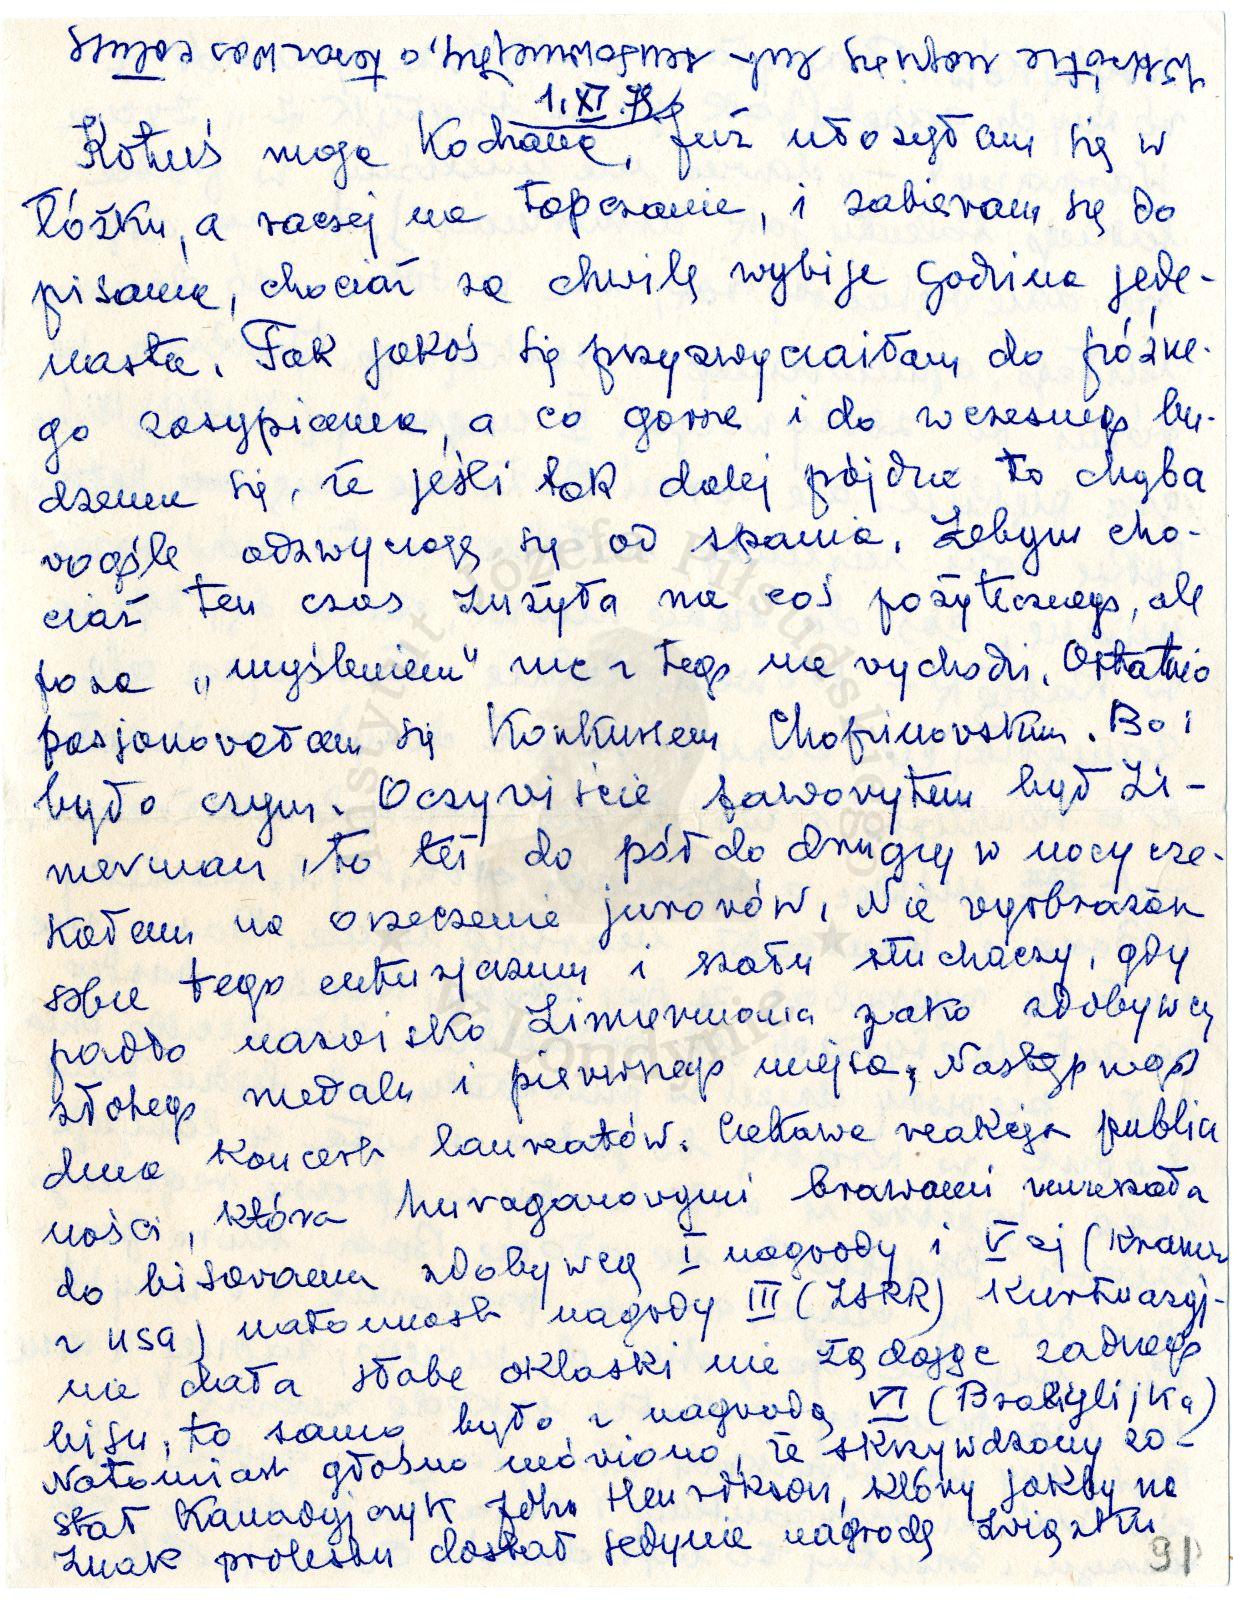 1.XI.75r
Kotuś moja Kochana, już ułożyłam się w
łóżku, a raczej na tapczanie, i zabieram się do
pisania, chociaż za chwilę wybije godzina jede-
nasta. Tak jakoś się przyzwyciaiłam do późne-
go zasypiania, a co gorsze i do wczesnego bu-
dzenia się, że jeśli tak dalej pójdzie to chyba
wogóle odzwyczaję się od spania. Żebym cho-
ciaż ten czas zużyła na coś pożytecznego, ale
poza „myśleniem" nic z tego nie wychodzi. Ostatnio
pasjonowałam się Konkursem Chopinowskim. Bo i
było czym. Oczywiście faworytem był Zi-
merman, to też do pół do drugiej w nocy cze-
kałam na orzeczenie jurorów. Nie wyobrażasz
sobie tego entuzjazmu i szału słuchaczy, gdy
padło nazwisko Zimermana jako zdobywcy
złotego medalu i pierwszego miejsca. Następnego
dnia koncert laureatów. Ciekawa reakcja public
ności, która huraganowymi brawami zmuszała
do bisowania zdobywcę I nagrody i V ej (
z USA) natomiast nagrody III (ZSRR) Kurtuazyj-
nie dała słabe oklaski nie żądając żadnego
bisu, to samo było z nagrodą VI (Brazylijka)
Natomiast głośno mówiono, że skrzywdzony zo-
stał Kanadyjczyk John Hendrikson, który jakby na
znak protestu dostał jedynie nagrodę Związku
91
Instytut Józefa Piłsudskiego
w Londynie